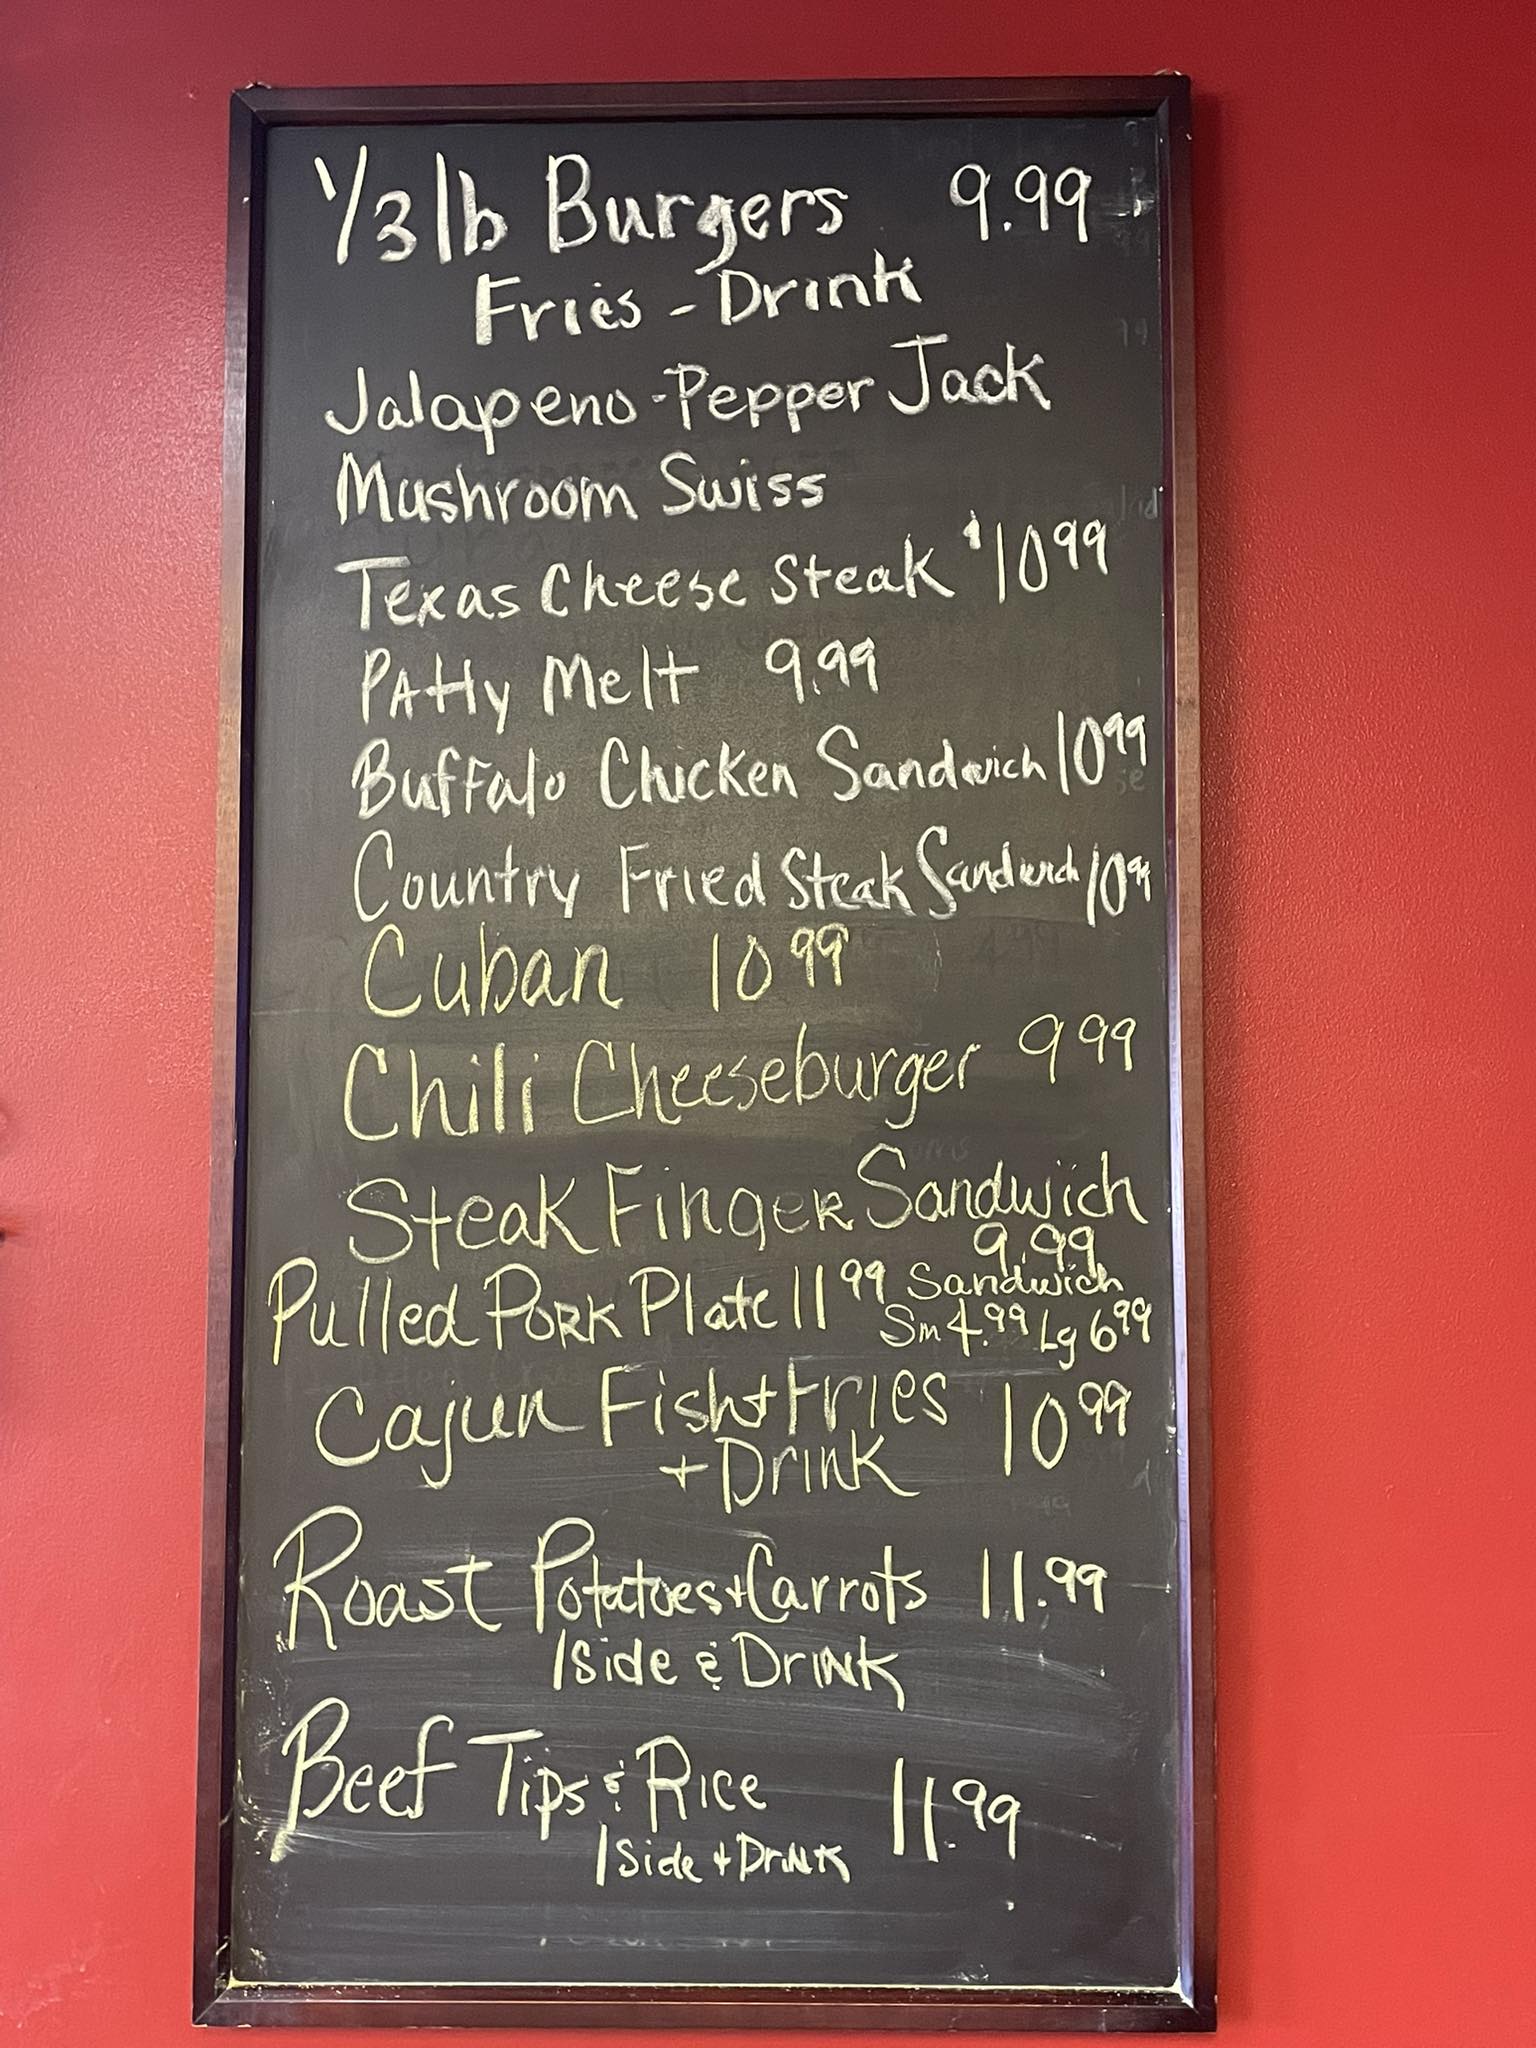 1/3 lb Burgers 9.99
Fries - Drink
Jalapeno - Pepper Jack
Mushroom Swiss
Texas Cheese Steak $10.99
Patty Melt 9.99
Buffalo Chicken Sandwich 10 99
Country Fried Steak Sandwich 10 99
Cuban 10 99
Chili Cheeseburger 9 99
Steak Finger Sandwich
9.99
Pulled Pork Plate 11 99 Sandwich
Sm 4.99 Lg 6 99
Cajun Fish + Fries 10 99
+ Drink
Roast Potatoes + Carrots 11.99
1 Side & Drink
Beef Tips & Rice 11.99
1 Side + Drink